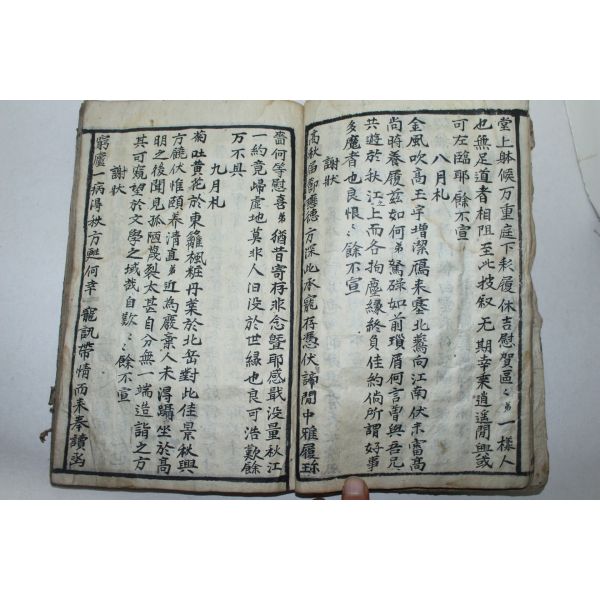 堂上躰候万重庭下彩履休吉慰賀區〻弟一樣人
也無足道者相阻至此披叙无期幸乘逍遥閒興或
可左臨耶餘不宣
八月札
金風吹高玉宇增潔鴈来塞北鷰向江南伏未審高
尚時養履玆如何弟驚碌如前瑣屑何言曾與吾兄
共遊於秋江之上而各拘塵縁終負佳約倘所謂好事
多魔者也良恨〻〻餘不宣
謝狀
高秋留鄙懋德方深此承寵存憑伏諦閒中雅履珎
嗇何等慰喜弟猶昔寄存非念曁耶感戢没量秋江
一約竟帰虚地莫非人汨没於世縁也良可浩歎餘
万不具
九月札
菊吐黄花於東籬楓粧丹葉於北岳對此佳景秋興
方饒伏惟頤養清直弟近為嚴豪人未得躋坐於高
明之後聞見孤陋蔑裂太甚自分無一端造詣之方
其可窺望於文學之域哉自歎〻〻餘不宣
謝狀
窮廬一病得秩方甦何幸寵訊帶情而来奉讀函